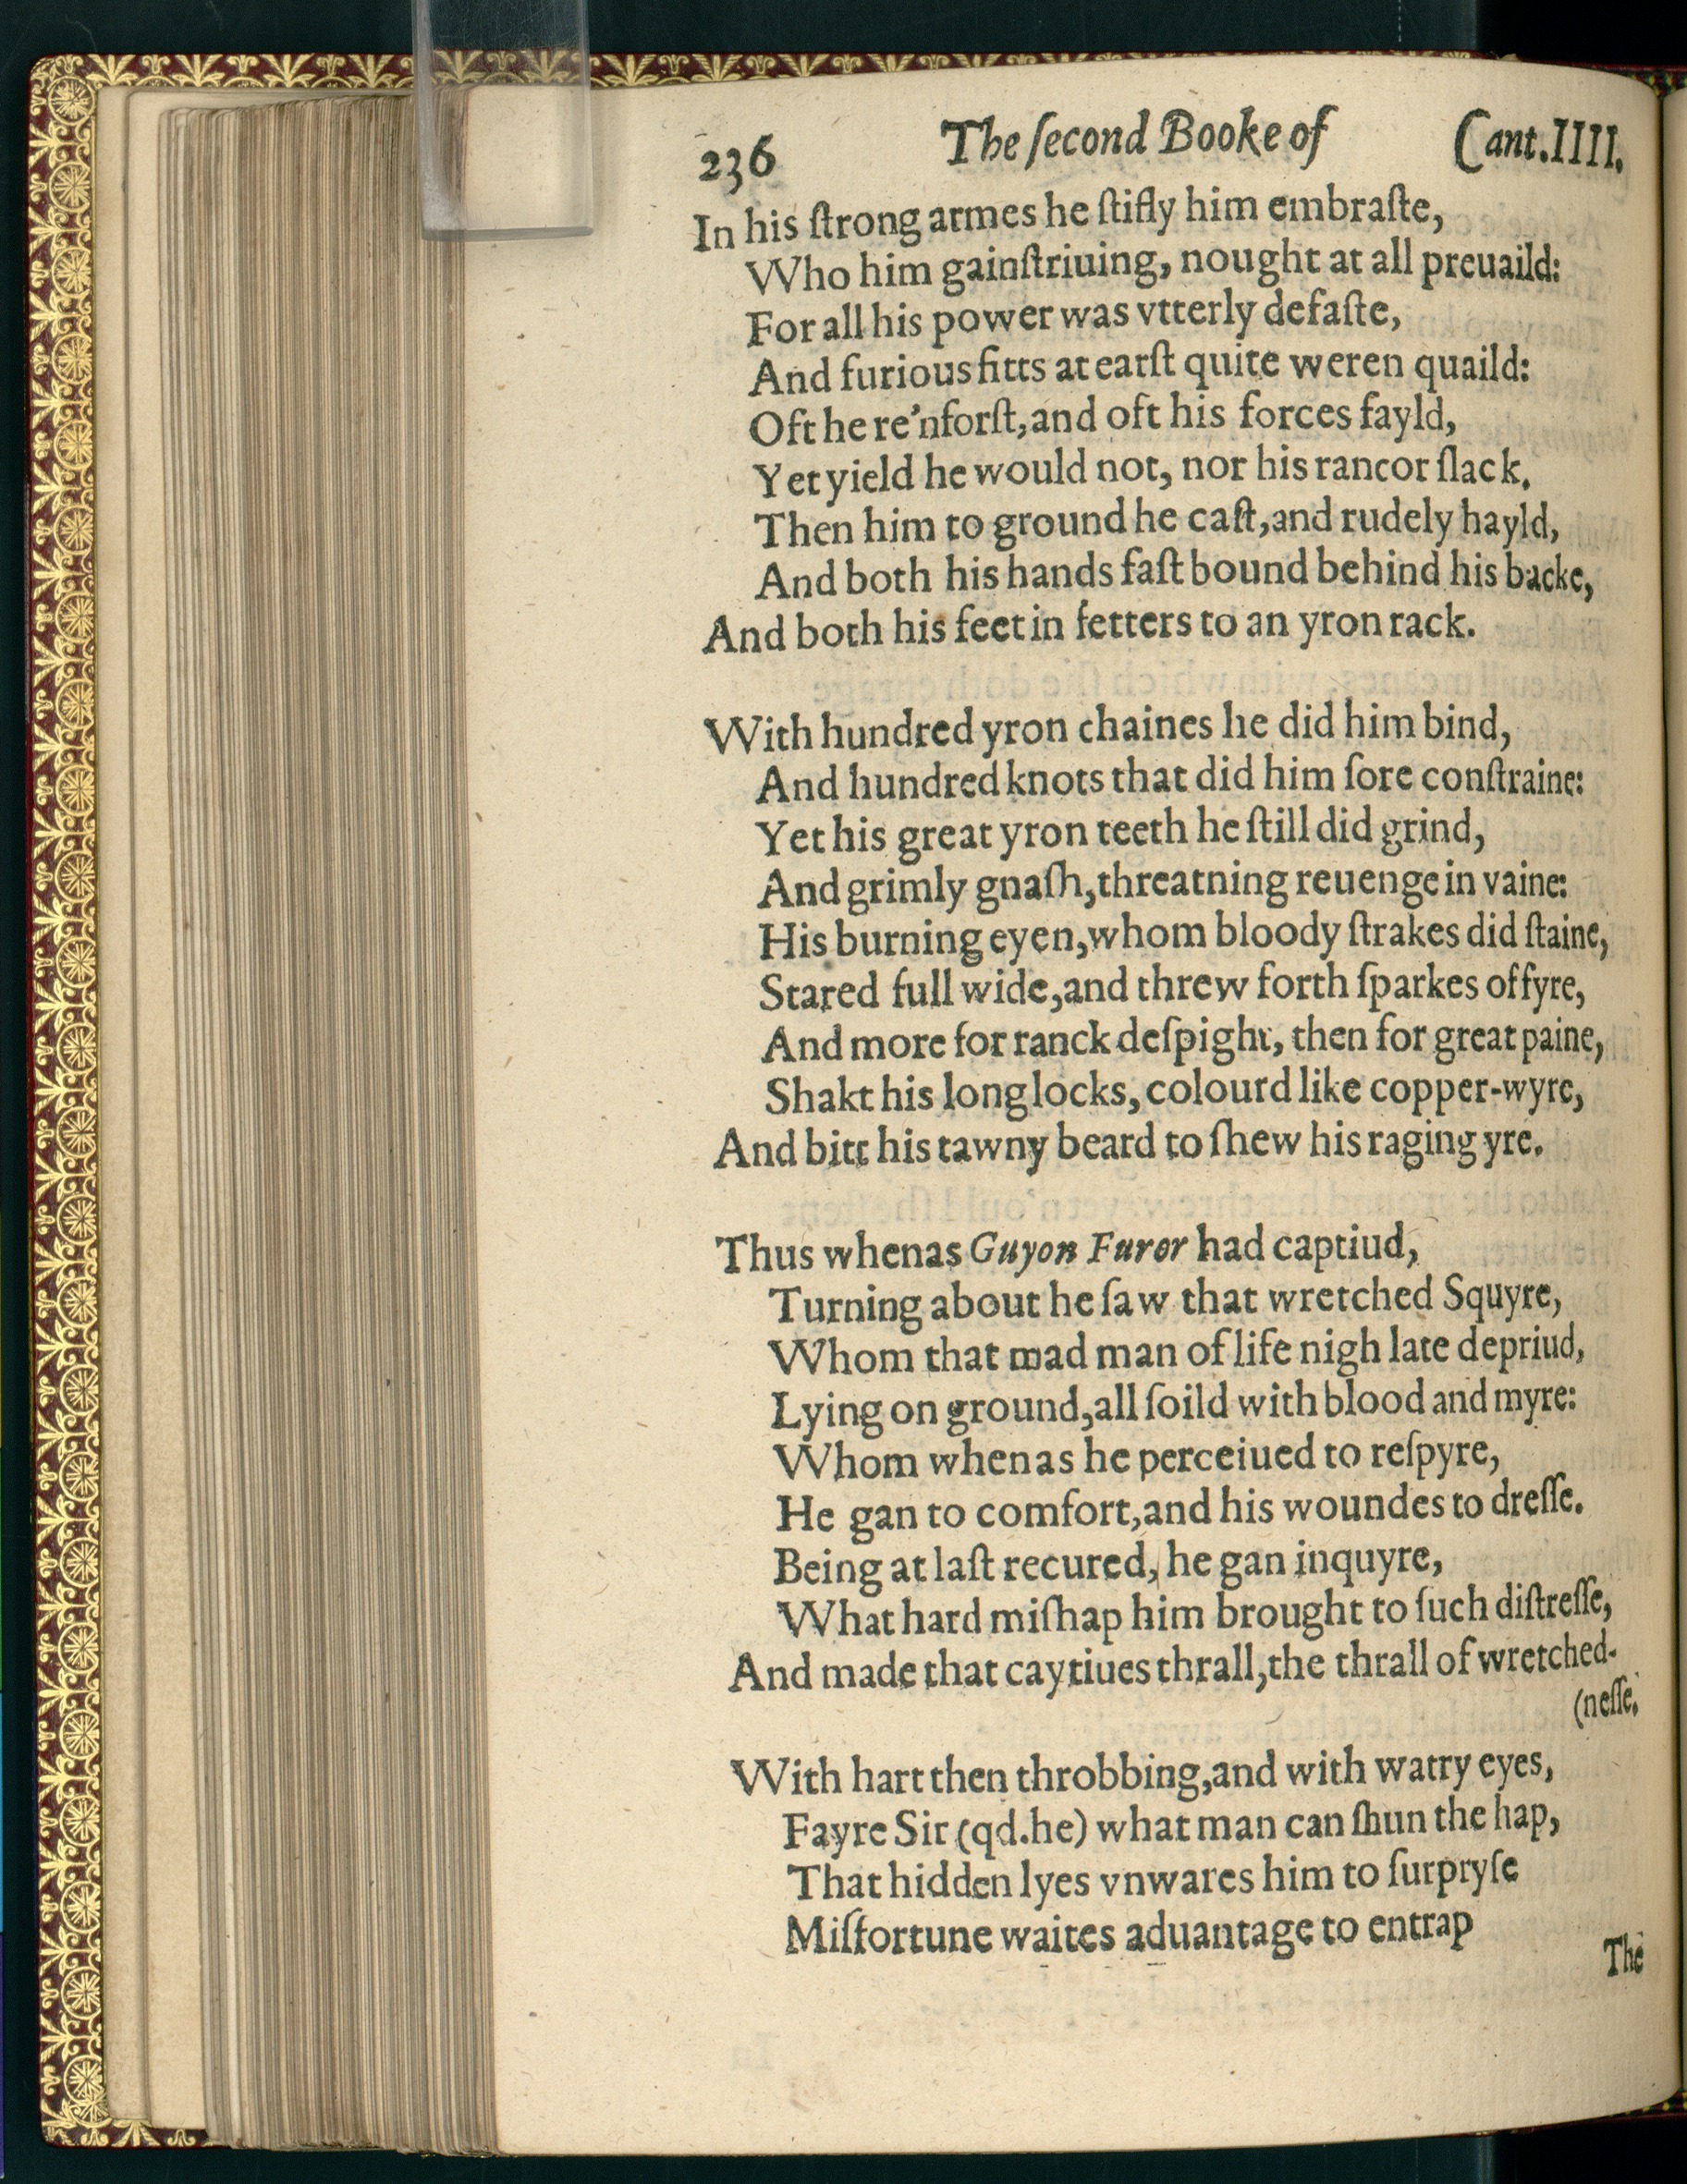 236 The ſecond Booke of Cant.IIII.
In his ſtrong armes he ſtifly him embraſte,
Who him gainſtriuing, nought at all preuaild:
For all his power was vtterly defaſte,
And furious fitts at earſt quite weren quaild:
Oft he re'nforſt, and oft his forces fayld,
Yet yield he would not, nor his rancor ſlack.
Then him to ground he caſt, and rudely hayld,
And both his hands faſt bound behind his backe,
And both his feet in fetters to an yron rack.
With hundred yron chaines he did him bind,
And hundred knots that did him ſore conſtraine:
Yet his great yron teeth he ſtill did grind,
And grimly gnaſh, threatning reuenge in vaine:
His burning eyen, whom bloody ſtrakes did ſtaine,
Stared full wide, and threw forth ſparkes of fyre,
And more for ranck deſpight, then for great paine,
Shakt his long locks, colourd like copper-wyre,
And bitt his tawny beard to ſhew his raging yre.
Thus whenas Guyon Furor had captiud,
Turning about he ſaw that wretched Squyre,
Whom that mad man of life nigh late depriud,
Lying on ground, all ſoild with blood and myre:
Whom whenas he perceiued to reſpyre,
He gan to comfort, and his woundes to dreſſe.
Being at laſt recured, he gan inquyre,
What hard miſhap him brought to ſuch diſtreſſe,
And made that caytiues thrall, the thrall of wretched-
(neſſe.
With hart then throbbing, and with watry eyes,
Fayre Sir (qd.he) what man can ſhun the hap,
That hidden lyes vnwares him to ſurpryſe
Miſfortune waites aduantage to entrap
The